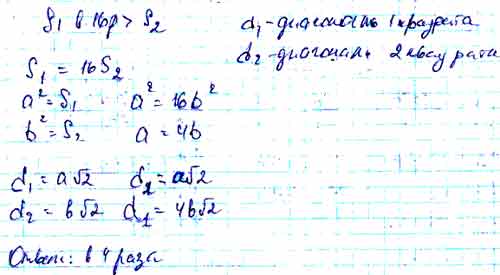 S₁ в 16р > S₂
d₁ - диагональ 1 квадрата
d₂ - диагональ 2 квадрата
S₁ = 16S₂
a² = S₁ a² = 16b²
b² = S₂ a = 4b
d₁ = a√2 d₁ = a√2
d₂ = b√2 d₁ = 4b√2
Ответ: в 4 раза